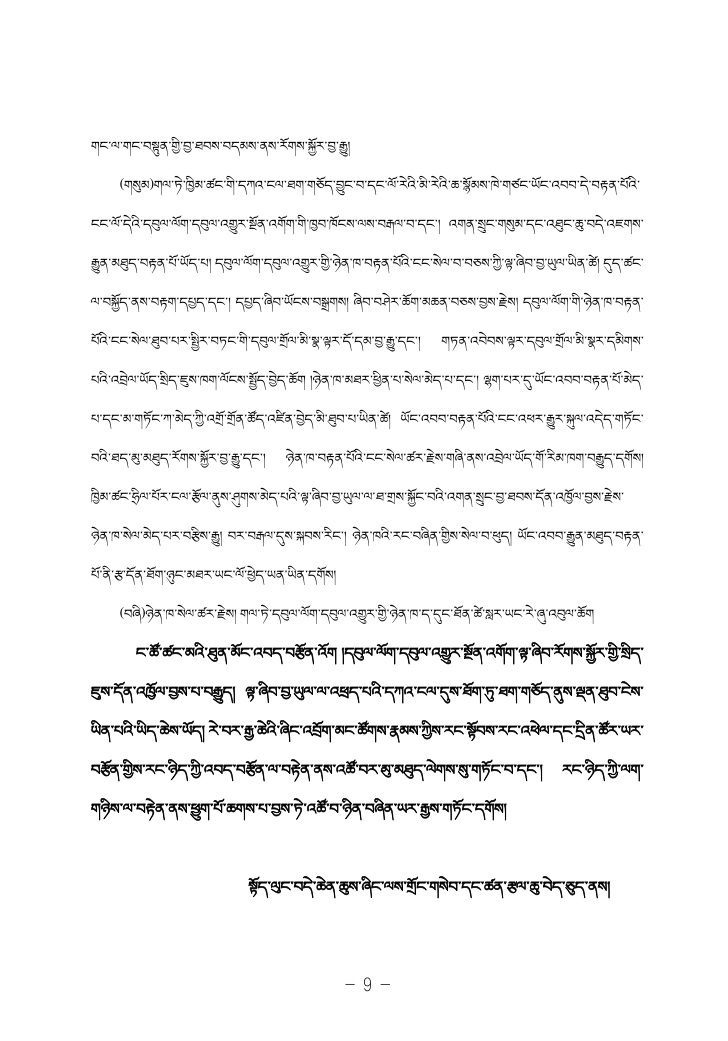 གང་ལ་གང་བསྟུན་གྱི་བྱ་ཐབས་བདམས་ནས་རོགས་སྐྱོར་བྱ་རྒྱུ།
(གསུམ)གལ་ཏེ་ཁྱིམ་ཚང་གི་དཀའ་ངལ་ཐག་གཅོད་བྱུང་བ་དང་ལོ་རེའི་མི་རེའི་ཆ་སྙོམས་ཁེ་གཙང་ཡོང་འབབ་དེ་བརྟན་པོའི་
ངང་ལོ་དེའི་དབུལ་ལོག་དབུལ་འགྱུར་སྔོན་འགོག་གི་ཁྱབ་ཁོངས་ལས་བརྒལ་བ་དང་། འགན་སྲུང་གསུམ་དང་འཐུང་ཆུ་བདེ་འཇགས་
རྒྱུན་མཐུད་བརྟན་པོ་ཡོད་པ། དབུལ་ལོག་དབུལ་འགྱུར་གྱི་ཉེན་ཁ་བརྟན་པོའི་ངང་སེལ་བ་བཅས་ཀྱི་ལྟ་ཞིབ་བྱ་ཡུལ་ཡིན་ཚེ། དུད་ཚང་
ལ་བསྐྱོད་ནས་བརྟག་དཔྱད་དང་། དཔྱད་ཞིབ་ཡོངས་བསྒྲགས། ཞིབ་བཤེར་ཆོག་མཆན་བཅས་བྱས་རྗེས། དབུལ་ལོག་གི་ཉེན་ཁ་བརྟན་
པོའི་ངང་སེལ་ཐུབ་པར་སྤྱིར་བཏང་གི་དབུལ་གྲོལ་མི་སྣ་ལྟར་དོ་དམ་བྱ་རྒྱུ་དང་། གཏན་འབེབས་ལྟར་དབུལ་གྲོལ་མི་སྣར་དམིགས་
པའི་འབྲེལ་ཡོད་སྲིད་ཇུས་ཁག་ལོངས་སྤྱོད་བྱེད་ཆོག །ཉེན་ཁ་མཐར་ཕྱིན་པ་སེལ་མེད་པ་དང་། ལྷག་པར་དུ་ཡོང་འབབ་བརྟན་པོ་མེད་
པ་དང་མ་གཏོང་ཀ་མེད་ཀྱི་འགྲོ་གྲོན་ཚོད་འཛིན་བྱེད་མི་ཐུབ་པ་ཡིན་ཚེ། ཡོང་འབབ་བརྟན་པོའི་ངང་འཕར་རྒྱུར་སྐུལ་འདེད་གཏོང་
བའི་ཐད་མུ་མཐུད་རོགས་སྐྱོར་བྱ་རྒྱུ་དང་། ཉེན་ཁ་བརྟན་པོའི་ངང་སེལ་ཚར་རྗེས་གཞི་ནས་འབྲེལ་ཡོད་གོ་རིམ་ཁག་བརྒྱུད་དགོས།
ཁྱིམ་ཚང་ཧྲིལ་པོར་ངལ་རྩོལ་ནུས་ཤུགས་མེད་པའི་ལྟ་ཞིབ་བྱ་ཡུལ་ལ་ཐ་གྲས་སྐྱོང་བའི་འགན་སྲུང་བྱ་ཐབས་དོན་འཁྱོལ་བྱས་རྗེས་
ཉེན་ཁ་སེལ་མེད་པར་བརྩིས་རྒྱུ། བར་བརྒལ་དུས་སྐབས་རིང་། ཉེན་ཁའི་རང་བཞིན་གྱིས་སེལ་བ་ཕུད། ཡོང་འབབ་རྒྱུན་མཐུད་བརྟན་
པོ་ནི་རྩ་དོན་ཐོག་ཉུང་མཐར་ཡང་ལོ་ཕྱེད་ཡན་ཡིན་དགོས།
(བཞི)ཉེན་ཁ་སེལ་ཚར་རྗེས། གལ་ཏེ་དབུལ་ལོག་དབུལ་འགྱུར་གྱི་ཉེན་ཁ་ད་དུང་ཐོན་ཚེ་སླར་ཡང་རེ་ཞུ་འབུལ་ཆོག
ང་ཚོ་ཚང་མའི་ཐུན་མོང་འབད་བརྩོན་འོག །དབུལ་ལོག་དབུལ་འགྱུར་སྔོན་འགོག་ལྟ་ཞིབ་རོགས་སྐྱོར་གྱི་སྲིད་
ཇུས་དོན་འཁྱོལ་བྱས་པ་བརྒྱུད། ལྟ་ཞིབ་བྱ་ཡུལ་ལ་འཕྲད་པའི་དཀའ་ངལ་དུས་ཐོག་ཏུ་ཐག་གཅོད་ནུས་ལྡན་ཐུབ་ངེས་
ཡིན་པའི་ཡིད་ཆེས་ཡོད། རེ་བར་རྒྱ་ཆེའི་ཞིང་འབྲོག་མང་ཚོགས་རྣམས་ཀྱིས་རང་སྟོབས་རང་འཕེལ་དང་དྲིན་ཚོར་ཡར་
བརྩོན་གྱིས་རང་ཉིད་ཀྱི་འབད་བརྩོན་ལ་བརྟེན་ནས་འཚོ་བར་མུ་མཐུད་ལེགས་སུ་གཏོང་བ་དང་། རང་ཉིད་ཀྱི་ལག་
གཉིས་ལ་བརྟེན་ནས་ཕྱུག་པོ་ཆགས་པ་བྱས་ཏེ་འཚོ་བ་ཉིན་བཞིན་ཡར་རྒྱས་གཏོང་དགོས།
སྟོད་ལུང་བདེ་ཆེན་ཆུས་ཞིང་ལས་གྲོང་གསེབ་དང་ཚན་རྩལ་ཆུ་བེད་ཅུད་ནས།
– 9 –